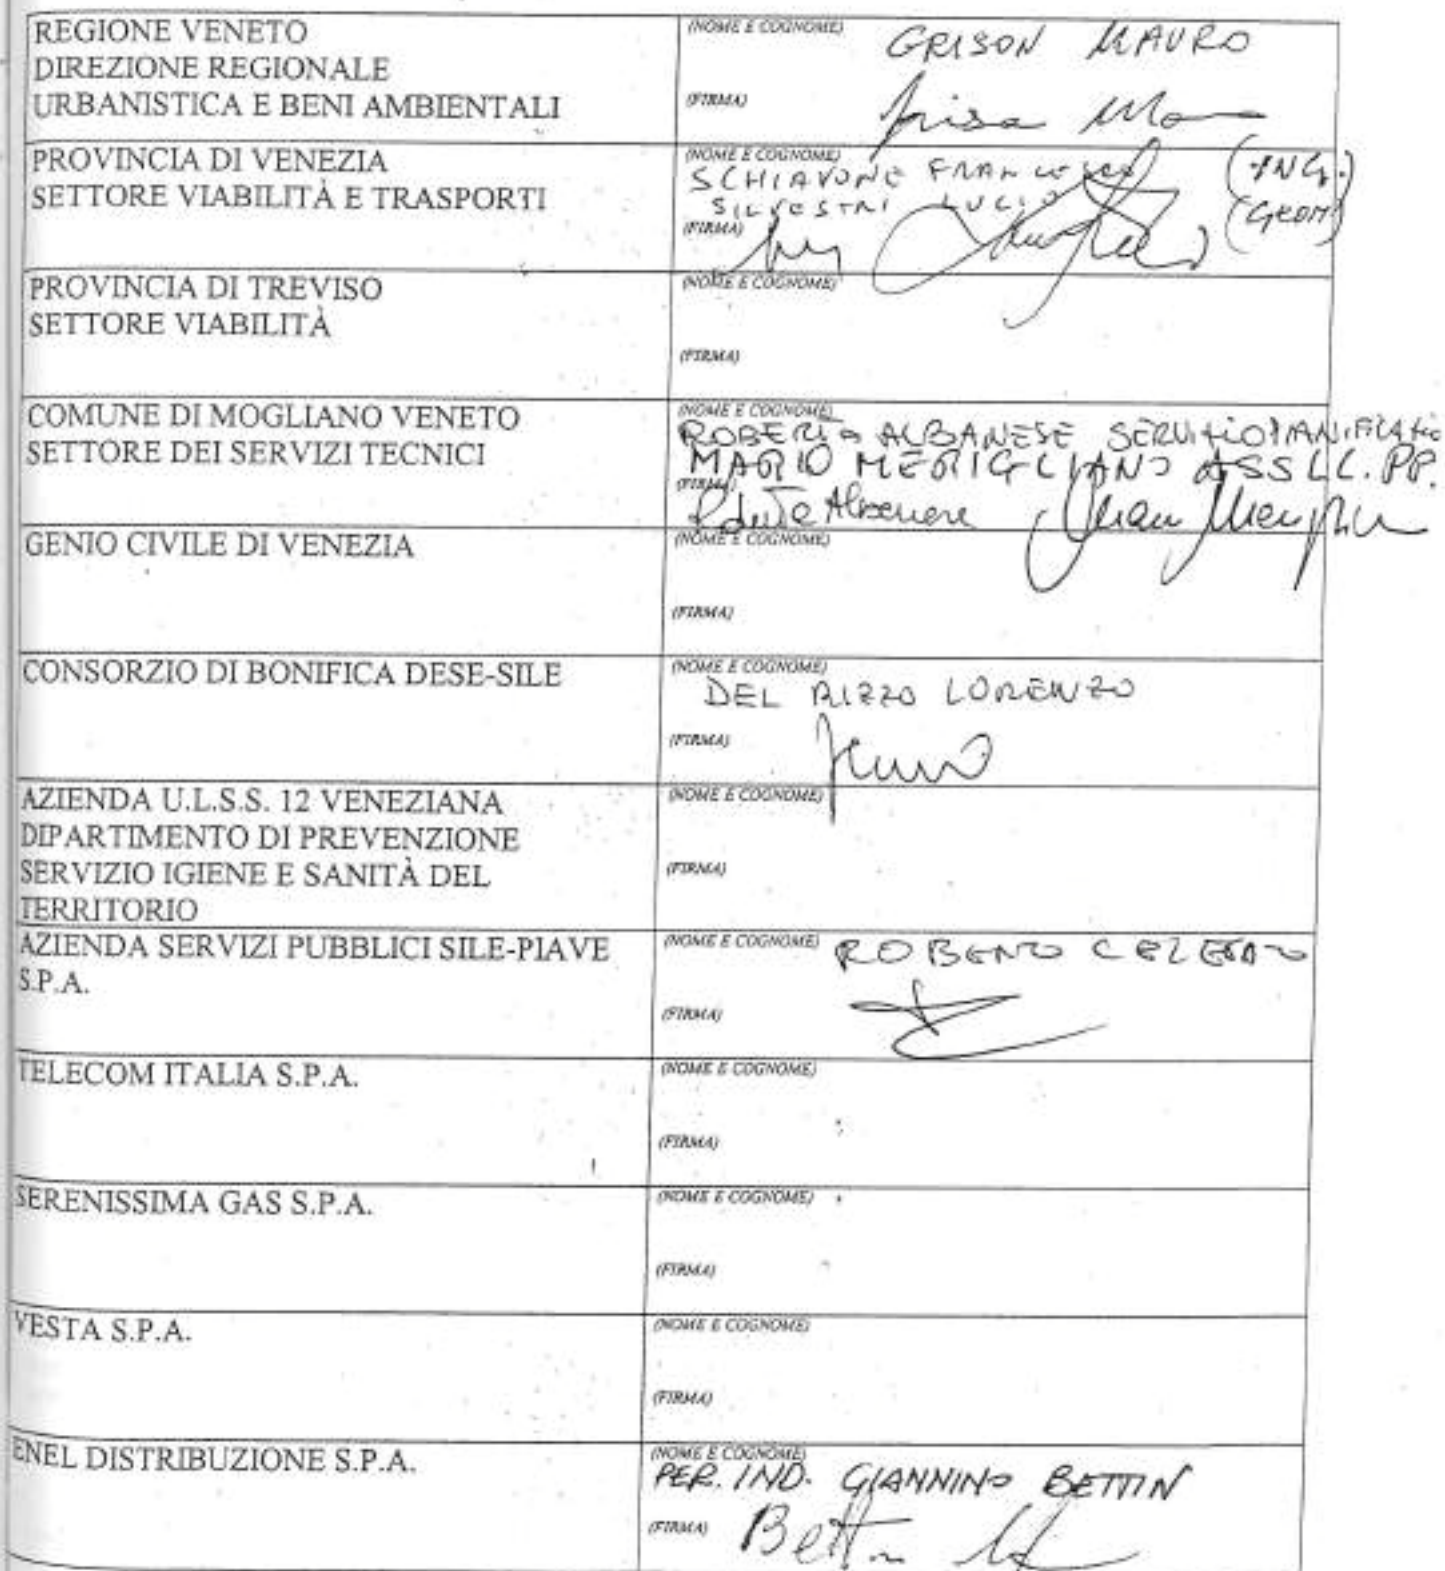 REGIONE VENETO
DIREZIONE REGIONALE
URBANISTICA E BENI AMBIENTALI
(NOME E COGNOME) GRISON MAURO
(FIRMA)
PROVINCIA DI VENEZIA
SETTORE VIABILITÀ E TRASPORTI
(NOME E COGNOME)
SCHIAVONE FRANCESCO (ING.)
SILVESTRI LUCIO (GEOM)
(FIRMA)
PROVINCIA DI TREVISO
SETTORE VIABILITÀ
(NOME E COGNOME)
(FIRMA)
COMUNE DI MOGLIANO VENETO
SETTORE DEI SERVIZI TECNICI
(NOME E COGNOME)
ROBERTA ALBANESE
MARIO MERIGLIANO ASS LL.PP.
(FIRMA)
GENIO CIVILE DI VENEZIA
(NOME E COGNOME)
(FIRMA)
CONSORZIO DI BONIFICA DESE-SILE
(NOME E COGNOME)
DEL RIZZO LORENZO
(FIRMA)
AZIENDA U.L.S.S. 12 VENEZIANA
DIPARTIMENTO DI PREVENZIONE
SERVIZIO IGIENE E SANITÀ DEL
TERRITORIO
(NOME E COGNOME)
(FIRMA)
AZIENDA SERVIZI PUBBLICI SILE-PIAVE
S.P.A.
(NOME E COGNOME) ROBERTO
(FIRMA)
TELECOM ITALIA S.P.A.
(NOME E COGNOME)
(FIRMA)
SERENISSIMA GAS S.P.A.
(NOME E COGNOME)
(FIRMA)
VESTA S.P.A.
(NOME E COGNOME)
(FIRMA)
ENEL DISTRIBUZIONE S.P.A.
(NOME E COGNOME)
PER. IND. GIANNINO BETTIN
(FIRMA) Bettin